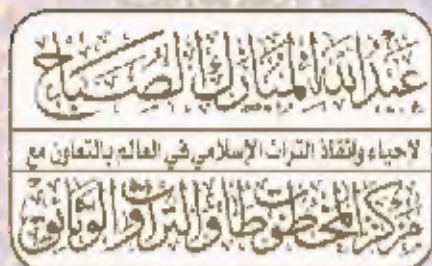 عبدالله المبارك الصباح
لاحياء وانقاذ التراث الإسلامي في العالم بالتعاون مع
مركز المخطوطات والتراث والوثائق